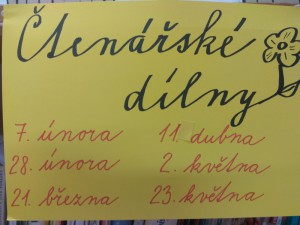 Čtenářské
dílny
7. února
28. února
21. března
11. dubna
2. května
23. května